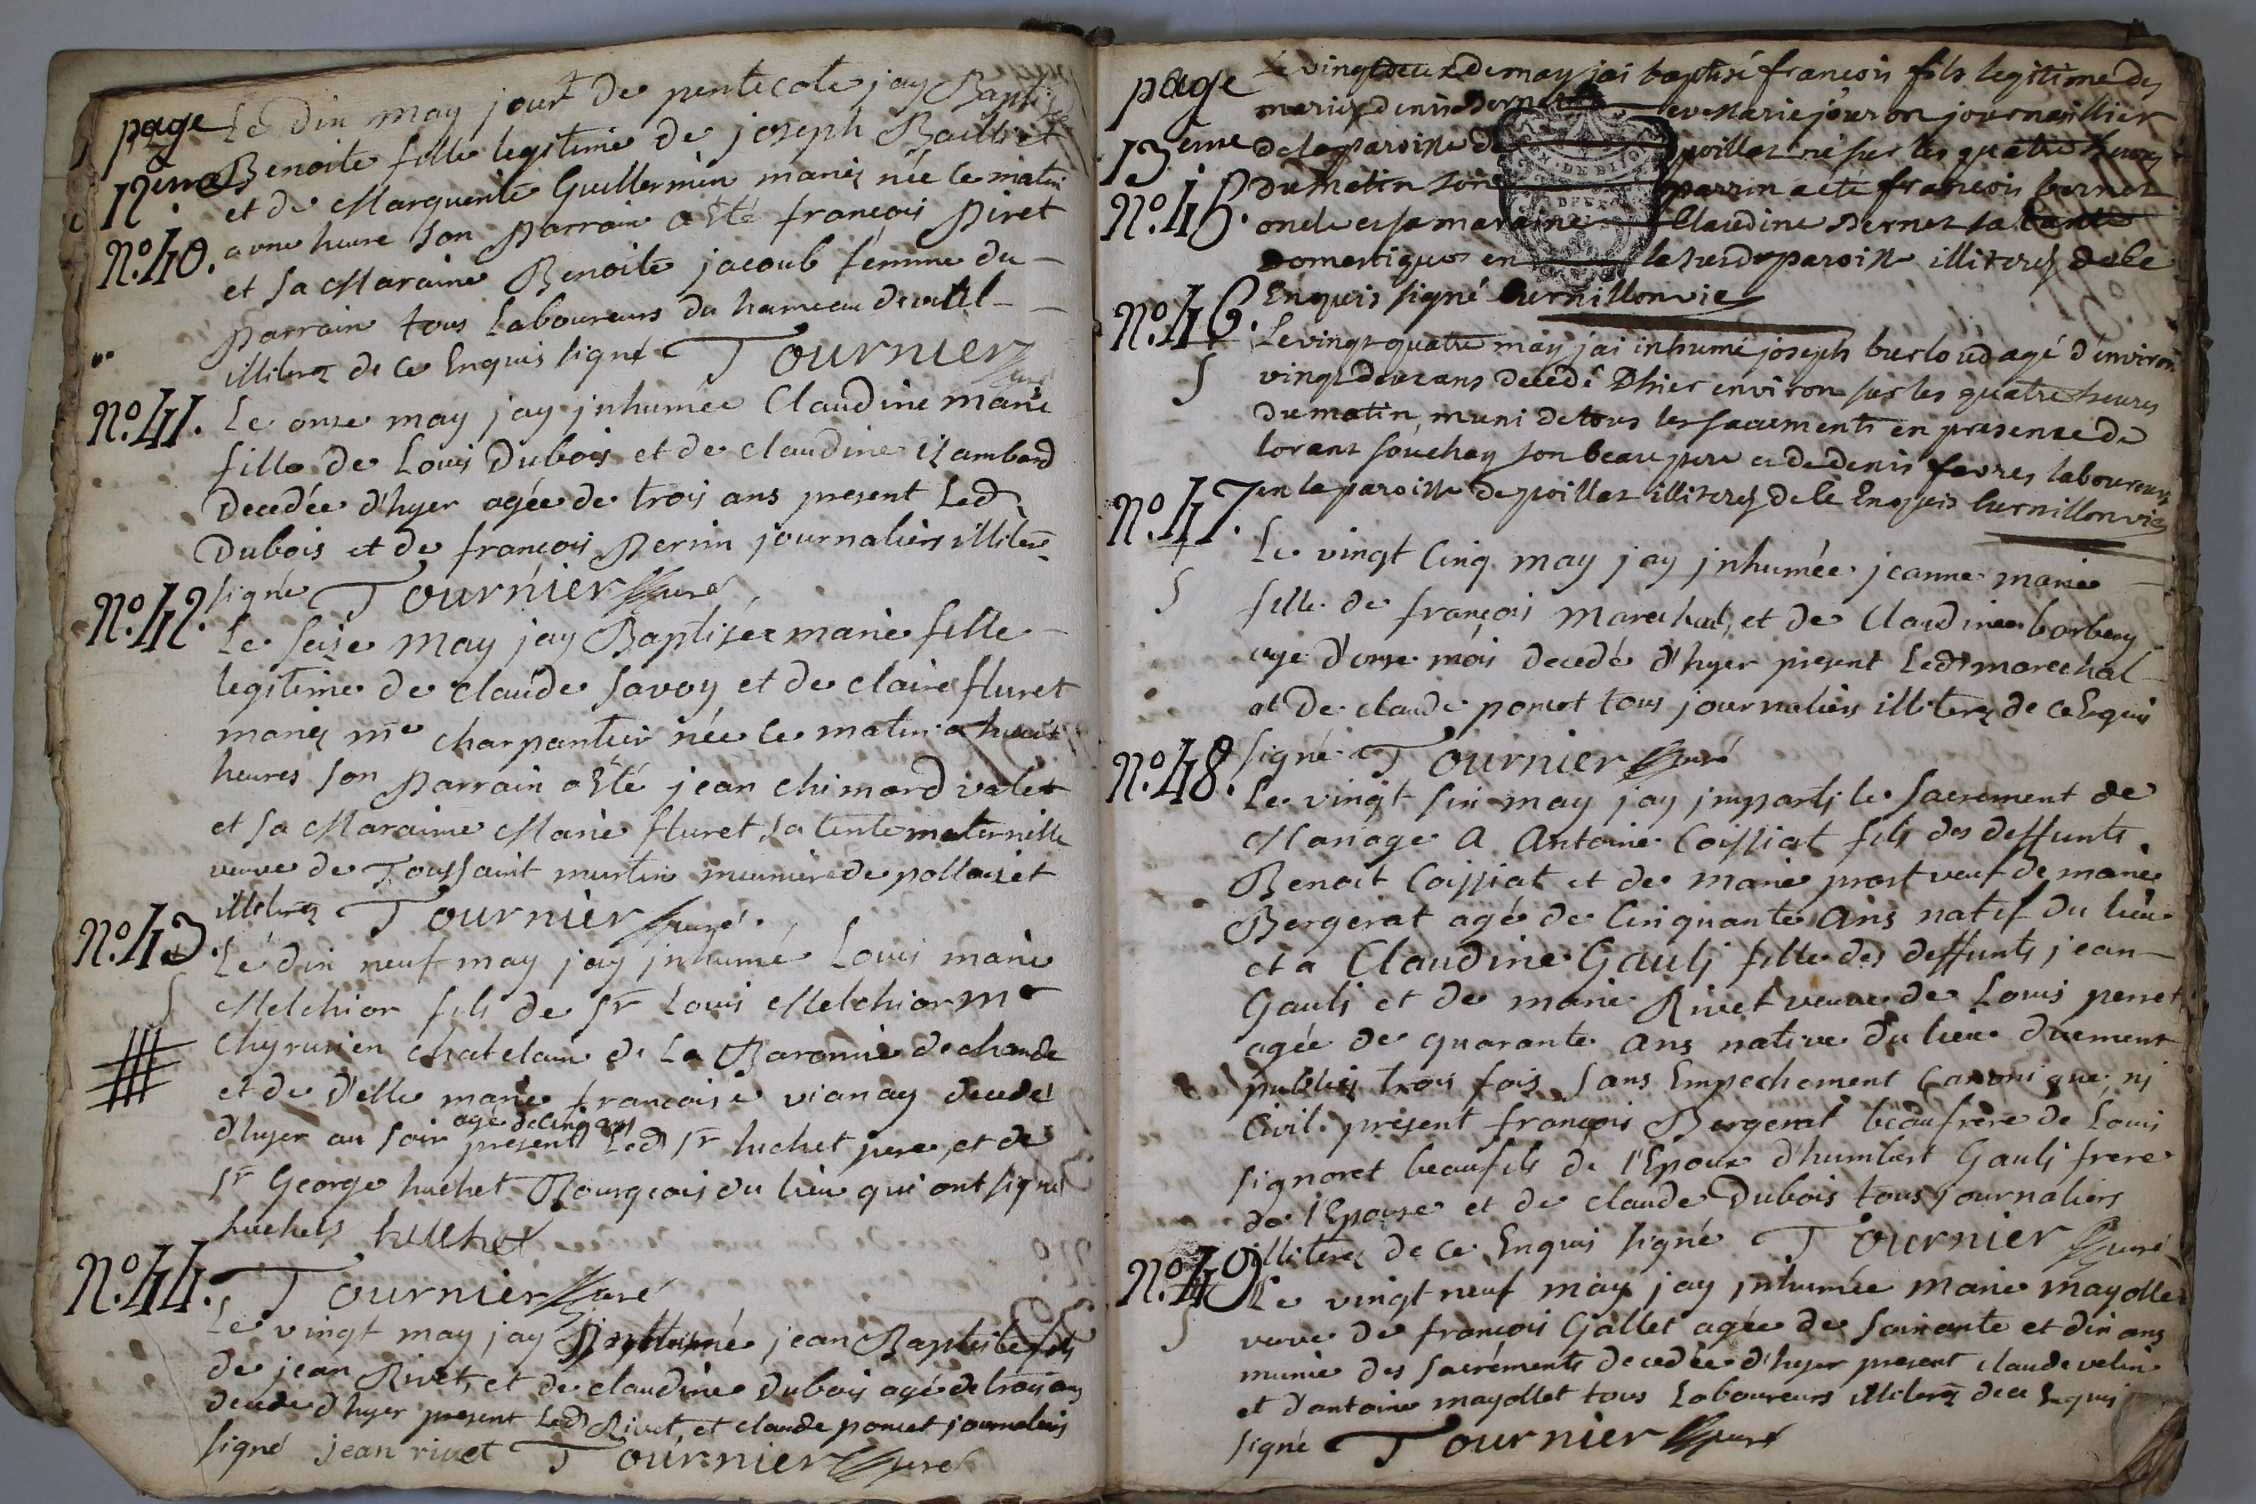 page
12eme
No.40.
Le dix may jour de pentecote jay Bapt
Benoite fille legitime de joseph Baillet
et de Marguerite Guillermin mariez née ce matin
a une heure son parrain a Eté françois Piret
et sa Maraine Benoite jacoub femme du
parrain tous Laboureurs du hameau
illiterez de ce Enquis signé Tournier Curé
No.41.
Le onze may jay jnhumée Claudine marie
fille de Louis Dubois et de claudine isambard
Decedée d'hyer agée de trois ans present Led
Dubois et de françois Perrin journaliers illiterez
signé Tournier Curé
No.42.
Le seize May jay Baptisée marie fille
legitime de claude savoy et de claire fluret
mariez me charpantier née ce matin a huit
heures son parrain a Eté jean chimard valet
et sa Maraine Marie fluret sa tente maternelle
veuve de Toussaint murtin meuniere de pollaiset
illiterez Tournier Curé.
No.43.
Le dix neuf may jay jnhumé Louis marie
Melchior fils de sr Louis Melchior me
Chyrurien chatelain de La Baronnie de
et de delle marie francoise vianay decedé
agé de cinq ans
d'hyer au soir present Led sr huchet pere, et de
sr George huchet Bourgeois du lieu qui ont signé
huchet huchet
No.44.
Tournier Curé
Le vingt may jay jean Baptiste fils
de jean Rivet, et de claudine Dubois agé de trois ans
decedé d'hyer present Led Rivet, et claude poncet journaliers
signé jean rivet Tournier Curé
page
13eme
No.45.
Le vingt deux de may jai baptisé françois fils legitime des
mariez denis Bernet et Marie jouron journaillier
de la paroisse de poillat né sur les quatre heures
du matin son parrin a eté francois bernet
oncle et sa maraine Claudine Bernet sa tante
Domestiques en la susd paroisse illiterez de ce
Enquis signé Curnillon vic
No.46.
Le vingt quatre may jai inhumé joseph burloud agé d'environ
vingt deux ans decedé Dhier environ sur les quatre heures
du matin, muni de tous les sacrements en presence de
lorent souchay son beau pere et de denis favres laboureurs
en la paroisse de poillat illiterez de ce Enquis Curnillon vic
No.47.
Le vingt Cinq may jay jnhumée jeanne marie
fille de françois Marechal, et de Claudine
age d'onze mois decedé d'hyer present Led marechal
et De claude poncet tous journaliers illiterez de ce Enquis
signé Tournier Curé
No.48.
Le vingt six may jay jmparti le sacrement de
Mariage a Antoine Coissiat fils des deffunts
Benoit Coissiat et de Marie prost veuf de marie
Bergerat agé de Cinquante Ans natif du lieu
et a Claudine Gauli fille des deffunts jean
Gauli et de marie Rivet veuve de Louis perret
agée de quarante Ans native du lieu duement
publiez trois fois sans Empechement Canonique, ni
Civil. present françois Bergerat beaufrere de Louis
signoret beaufils de l'Epoux d'humbert Gauli frere
de l'Epouse et de claude Dubois tous journaliers
illiterez de ce Enquis signé Tournier Curé
No.49
Le vingt neuf may jay jnhumée Marie mayolle
veuve de françois Gallet agée de soixante et dix ans
munie des sacréments decedée d'hyer present claude velin
et d'antoine mayollet tous Laboureurs illiterez de ce Enquis
signé Tournier Curé